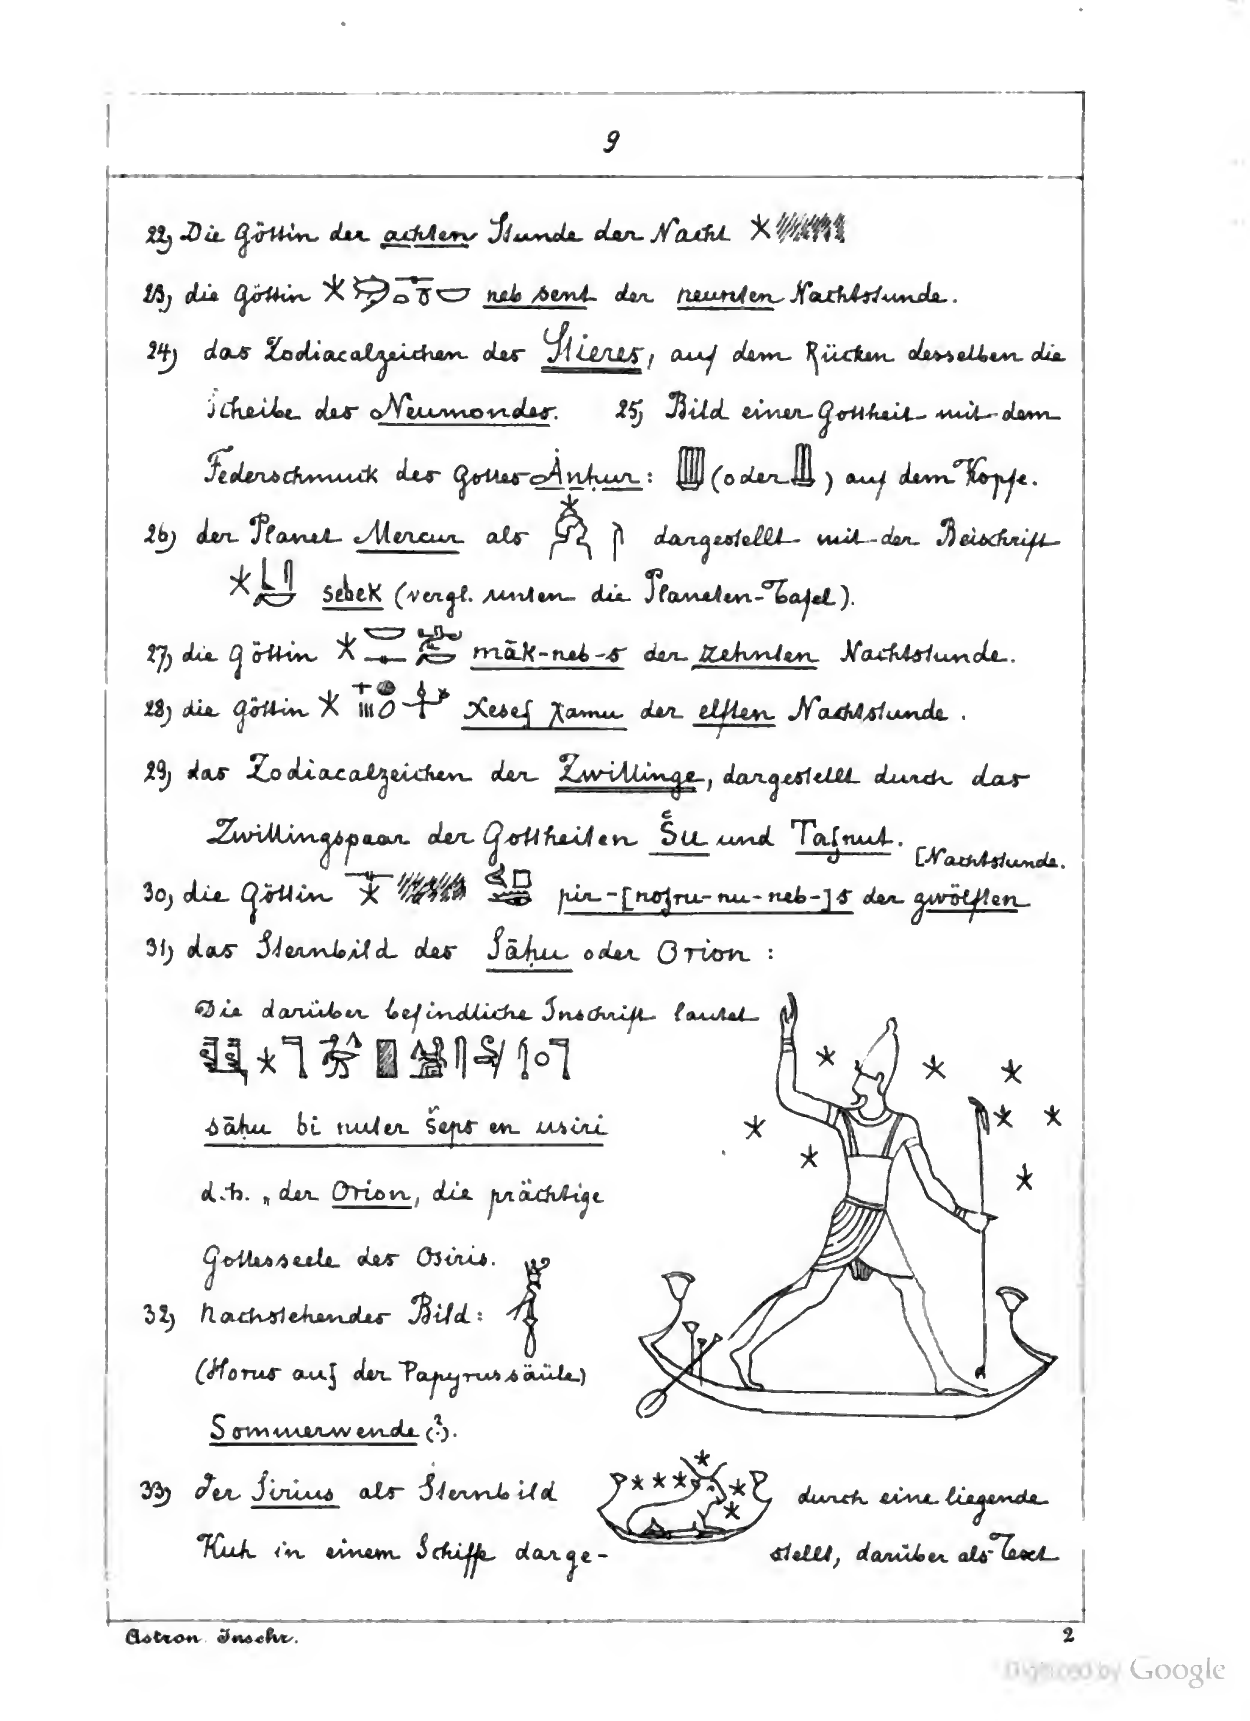 9
22, Die Göttin der achten Stunde der Nacht
23, die Göttin neb sent der neunten Nachtstunde.
24, das Zodiacalzeichen des Stieres, auf dem Rücken desselben die
Scheibe des Neumondes. 25, Bild einer Gottheit mit dem
Federschmuck des Gottes Ȧnḥur: (oder ) auf dem Kopfe.
26, der Planet Mercur als dargestellt mit der Beischrift
sebek (vergl. unten die Planeten-Tafel).
27, die Göttin māk-neb-s der zehnten Nachtstunde.
28, die Göttin χesef χamu der elften Nachtstunde.
29, das Zodiacalzeichen der Zwillinge, dargestellt durch das
Zwillingspaar der Gottheiten Šu und Tafnut.
[Nachtstunde.
30, die Göttin pir-[nofru-nu-neb-]s der zwölften
31, das Sternbild des Sāḥu oder Orion:
Die darüber befindliche Inschrift lautet
sāḥu bi nuter šeps en usiri
d.h. „der Orion, die prächtige
Gottesseele des Osiris.
32, Nachstehendes Bild:
(Horus auf der Papyrussäule)
Sommerwende (?).
33, der Sirius als Sternbild durch eine liegende
Kuh in einem Schiffe darge- stellt, darüber als Text
Astron. Inschr. 2
Digitized by Google